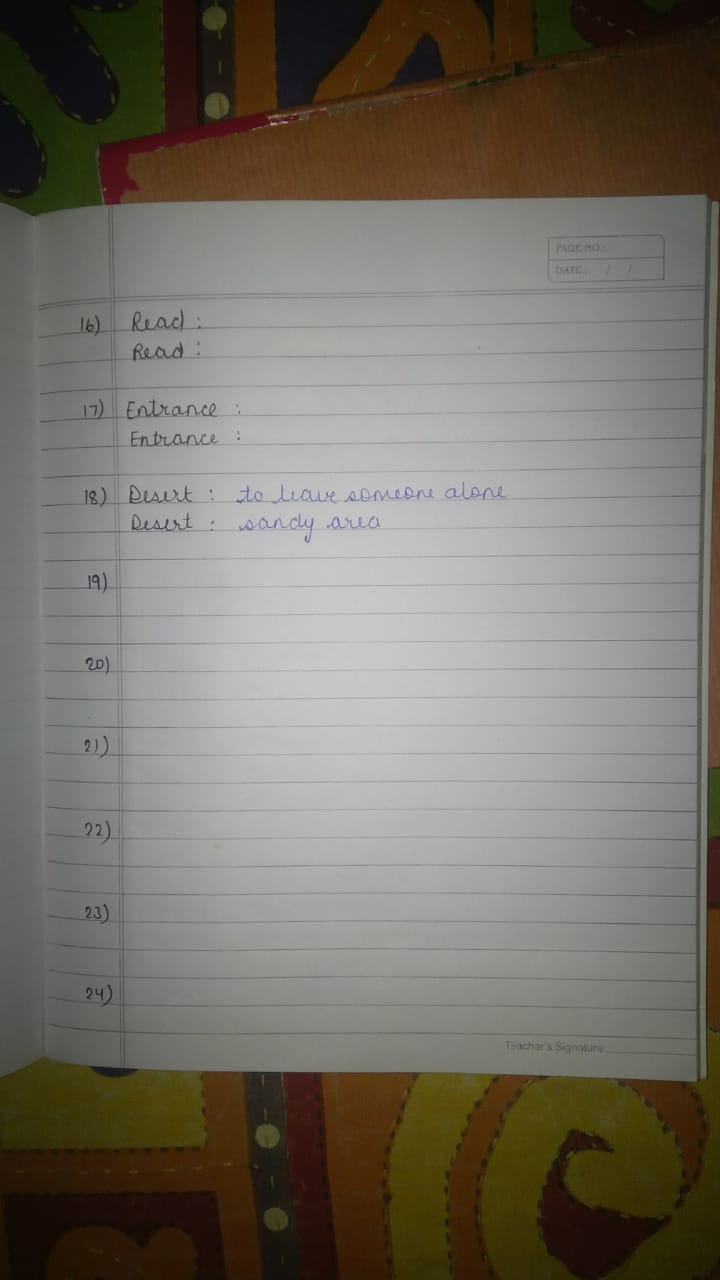 PAGE NO.:
DATE: / /
16) Read :
Read :
17) Entrance :
Entrance :
18) Desert : to leave someone alone
Desert : sandy area
19)
20)
21)
22)
23)
24)
Teacher's Signature